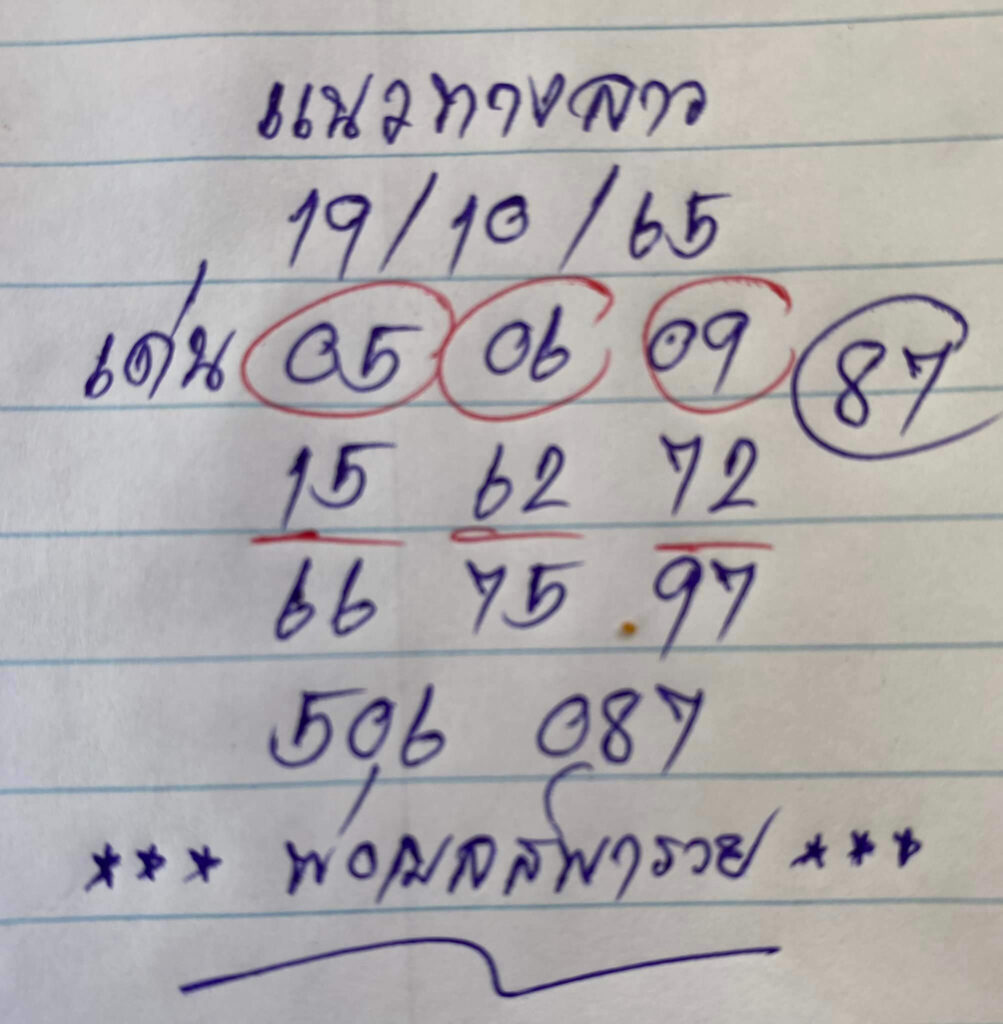 แนวทางลาว
19/10/65
เด่น 05 06 09 87
15 62 72
66 75 97
506 087
*** พารวย ***